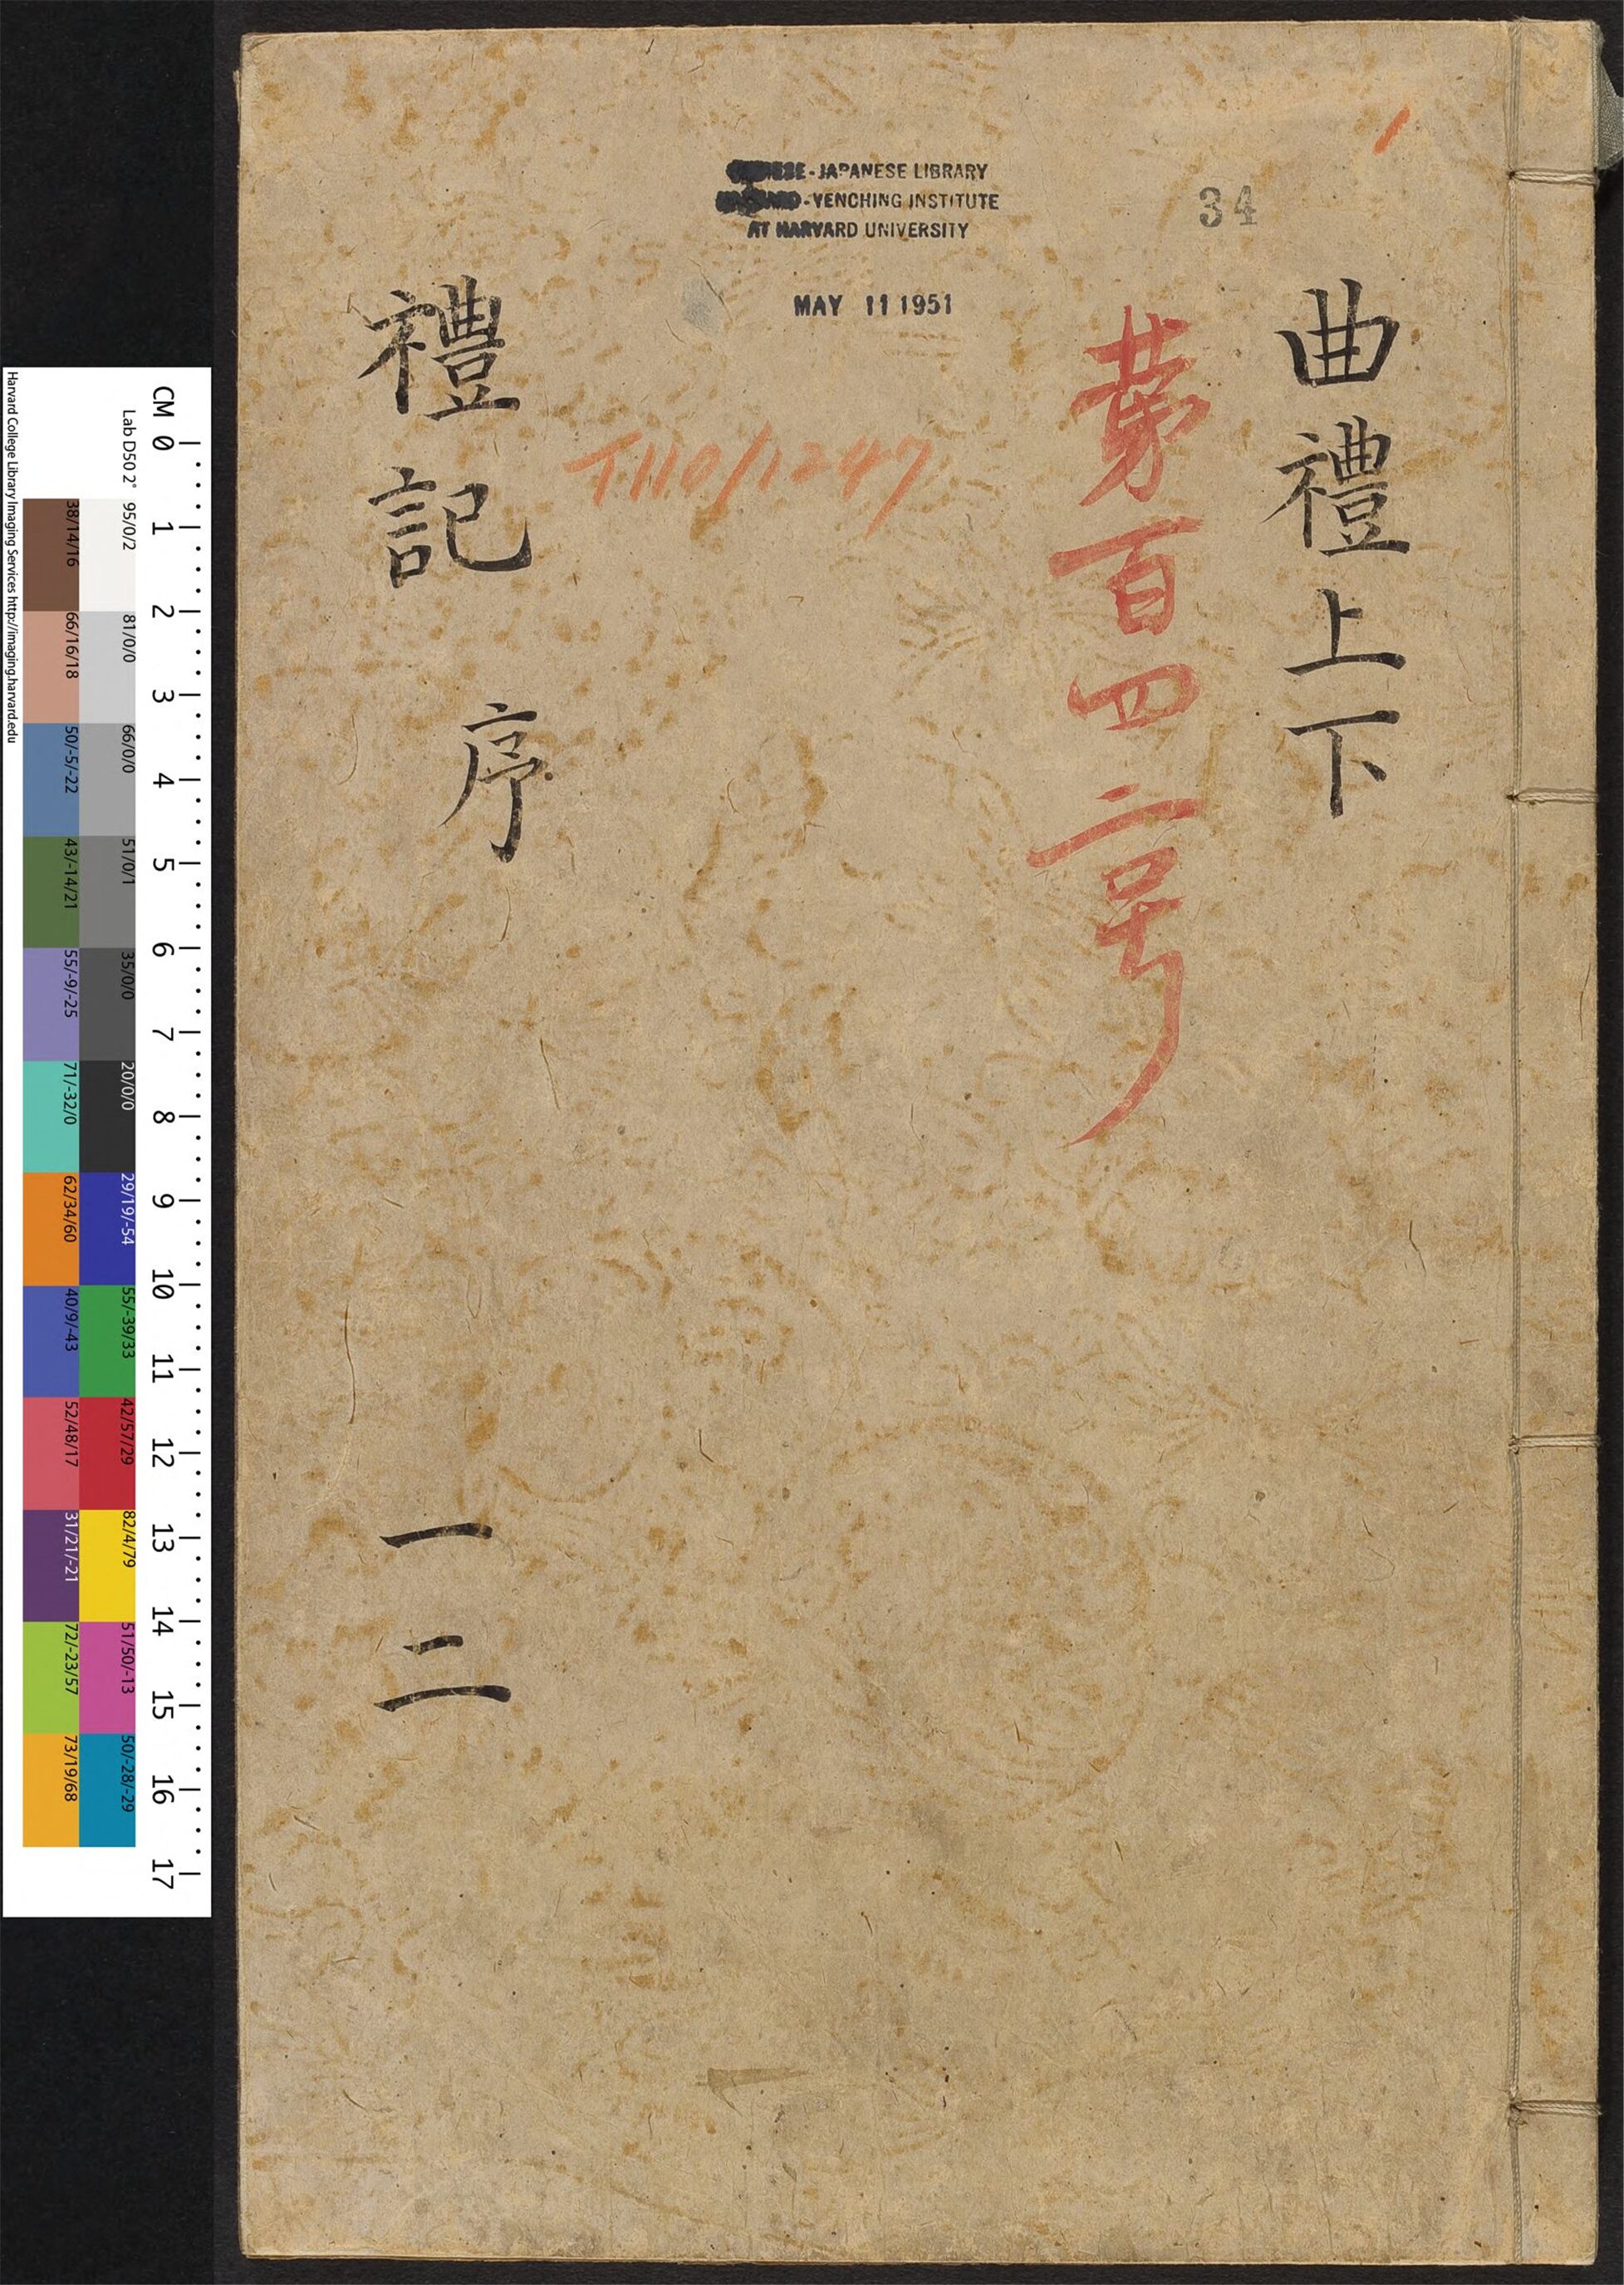 曲禮上下
第百四二号
34
JAPANESE LIBRARY
-YENCHING INSTITUTE
AT HARVARD UNIVERSITY
MAY 11 1951
T110/1247
禮記 序
一二
CM 0 1 2 3 4 5 6 7 8 9 10 11 12 13 14 15 16 17
Lab D50 2°
95/0/2 81/0/0 66/0/0 51/0/1 35/0/0 20/0/0 29/19/-54 55/-39/33 42/57/29 82/4/79 51/50/-13 50/-28/-29
38/14/16 66/16/18 50/-5/-22 43/-14/21 55/-9/-25 71/-32/0 62/34/60 40/9/-43 52/48/17 31/21/-21 72/-23/57 73/19/68
Harvard College Library Imaging Services http://imaging.harvard.edu